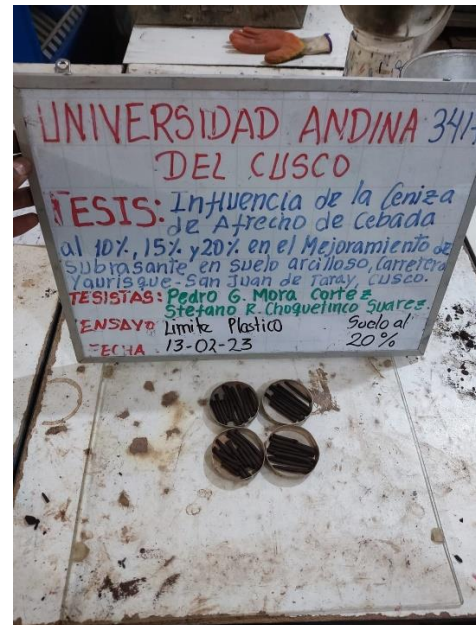 UNIVERSIDAD ANDINA 341-
DEL CUSCO
TESIS: Influencia de la Ceniza
de Afrecho de Cebada
al 10%, 15% y 20% en el Mejoramiento de
Subrasante en suelo arcilloso, Carretera
Yaurisque-San Juan de Taray, Cusco.
TESISTAS: Pedro G. Mora Cortez
Stefano R. Choquetinco Suarez.
ENSAYO Limite Plastico Suelo al
FECHA 13-02-23 20%